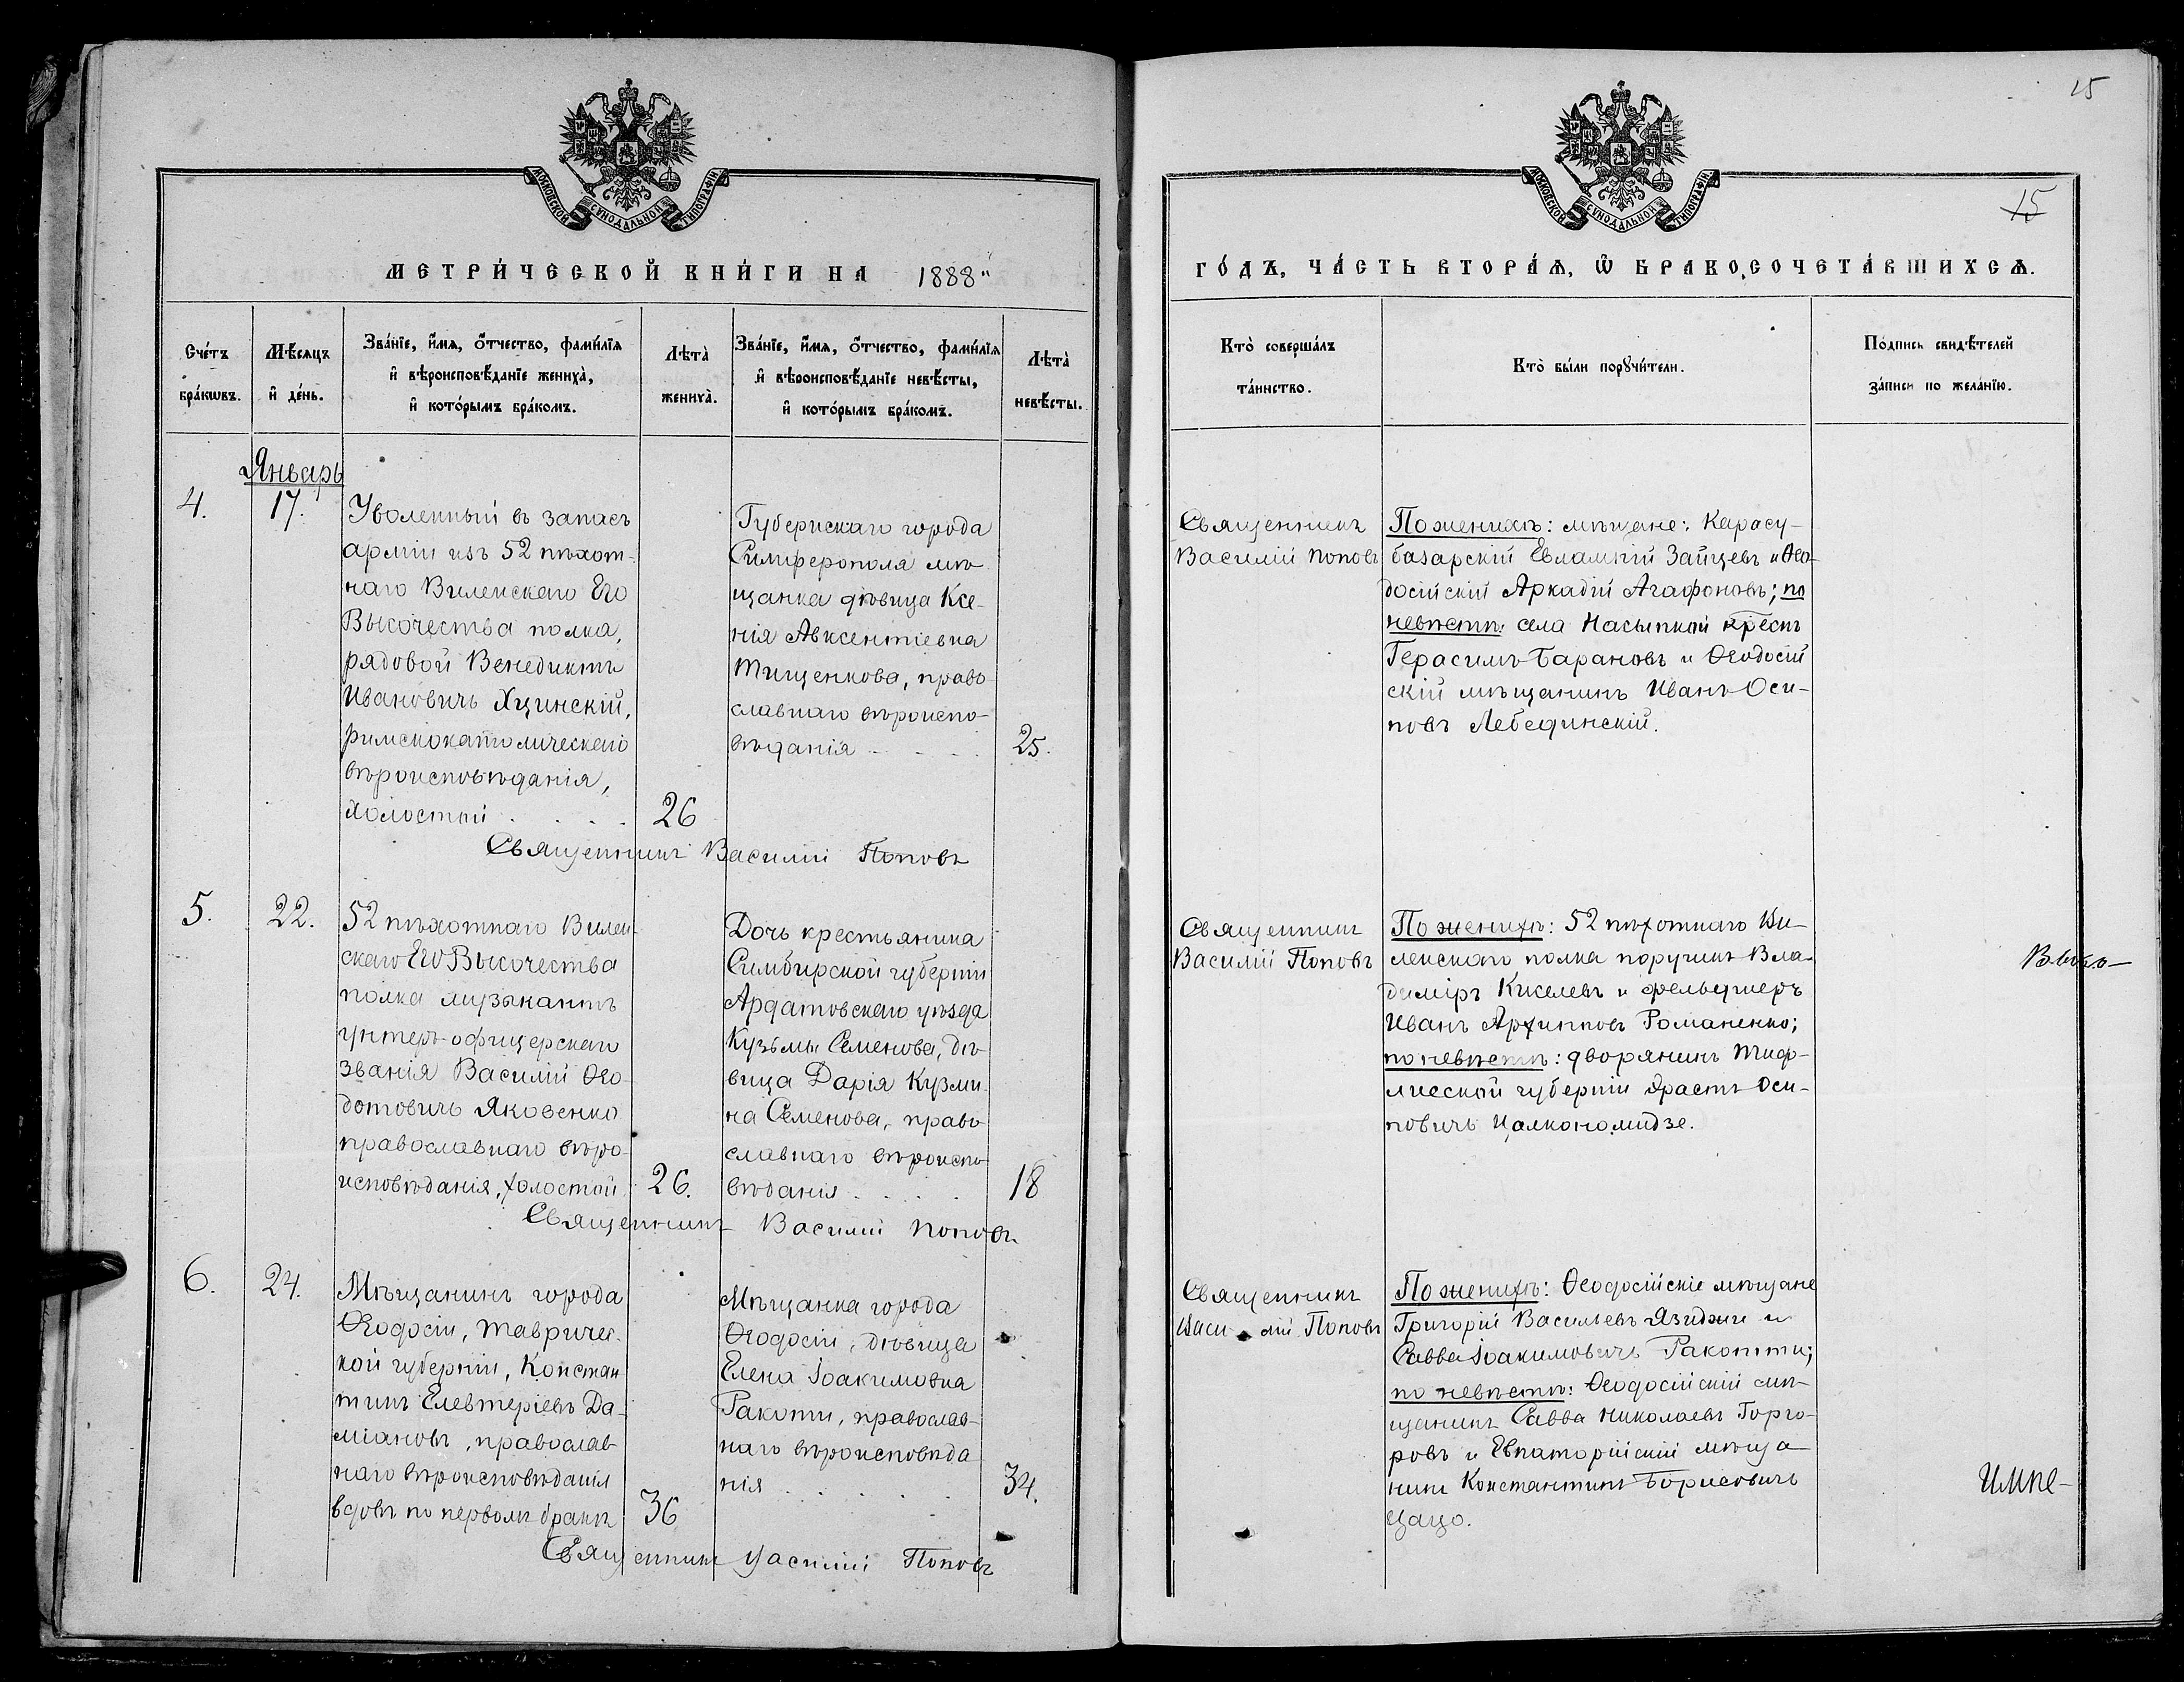 15
МОСКОВСКОЙ СУНОДАЛЬНОЙ ТИПОГРАФІИ
МЕТРИ́ЧЕСКОЙ КНИ́ГИ НА 1888
Сче́тъ бра́кωвъ.
Мѣ́сяцъ и҆ де́нь.
Зва́нїе, и҆́мѧ, ѻ҆́тчество, фами́лїѧ
и҆ вѣроисповѣ́данїе жениха̀,
и҆ кото́рымъ бра́комъ.
Лѣта̀ жениха̀.
Зва́нїе, и҆́мѧ, ѻ҆́тчество, фами́лїѧ
и҆ вѣроисповѣ́данїе невѣ́сты,
и҆ кото́рымъ бра́комъ.
Лѣта̀ невѣ́сты.
Январь
4.
17.
Уволенный въ запасъ
арміи изъ 52 пѣхот-
наго Виленскаго Его
Высочества полка,
рядовой Венедиктъ
Ивановичъ Хцинскій,
римскокатолическаго
вѣроисповѣданія,
холостой . . . .
26
Губернскаго города
Симферополя мѣ-
щанка дѣвица Ксе-
нія Авксентіевна
Тищенкова, право-
славнаго вѣроиспо-
вѣданія . . . .
25.
Священникъ Василій Поповъ
5.
22.
52 пѣхотнаго Вилен-
скаго Его Высочества
полка музыкантъ
унтеръ-офицерскаго
званія Василій Ѳео-
дотовичъ Яковенко
православнаго вѣро-
исповѣданія, холостой
26.
Дочь крестьянина
Симбирской губерніи
Ардатовскаго уѣзда
Кузьмы Семенова, дѣ-
вица Дарія Кузми-
на Семенова, право-
славнаго вѣроиспо-
вѣданія . . . .
18
Священникъ Василій Поповъ
6.
24.
Мѣщанинъ города
Ѳеодосіи, Тавричес-
кой губерніи, Констан
тинъ Елевтеріевъ Да-
міановъ, православ-
наго вѣроисповѣданія
вдовъ по первомъ бракѣ
36
Мѣщанка города
Ѳеодосіи, дѣвица
Елена Іоакимовна
Ракоти, православ-
наго вѣроисповѣда
нія . . . . .
34.
Священникъ Василій Поповъ
МОСКОВСКОЙ СУНОДАЛЬНОЙ ТИПОГРАФІИ
15
ГО́ДЪ, ЧА́СТЬ ВТОРА́Ѧ, Ѡ҆ БРАКОСОЧЕТА́ВШИХСѦ.
Кто̀ соверша́лъ
та́инство.
Кто̀ бы́ли порꙋчи́тели.
По́дпись свидѣ́телей
за́писи по жела́нїю.
Священникъ
Василій Поповъ
По женихѣ: мѣщане: Карасу-
базарскій Евлампій Зайцевъ и Ѳео-
досійскій Аркадій Агафоновъ; по
невѣстѣ: села Насыпкой крест
Герасимъ Барановъ и Ѳеодосій
скій мѣщанинъ Иванъ Оси-
повъ Лебединскій.
Священникъ
Василій Поповъ
По женихѣ: 52 пѣхотнаго Ви-
ленскаго полка поручикъ Вла-
диміръ Киселевъ и фельдшеръ
Иванъ Архиповъ Романенко;
по невѣстѣ: дворянинъ Тиф-
лисской губерніи Эрастъ Оси-
повичъ Цалкономидзе.
Священникъ
Василій Поповъ
По женихѣ: Ѳеодосійскіе мѣщане
Григорій Васильевъ Язиджи и
Савва Іоакимовичъ Ракотти;
по невѣстѣ: Ѳеодосійскій мѣ-
щанинъ Савва Николаевъ Горго-
ровъ и Евпаторійскій мѣща
нинъ Константинъ Борисовичъ
Цацо.